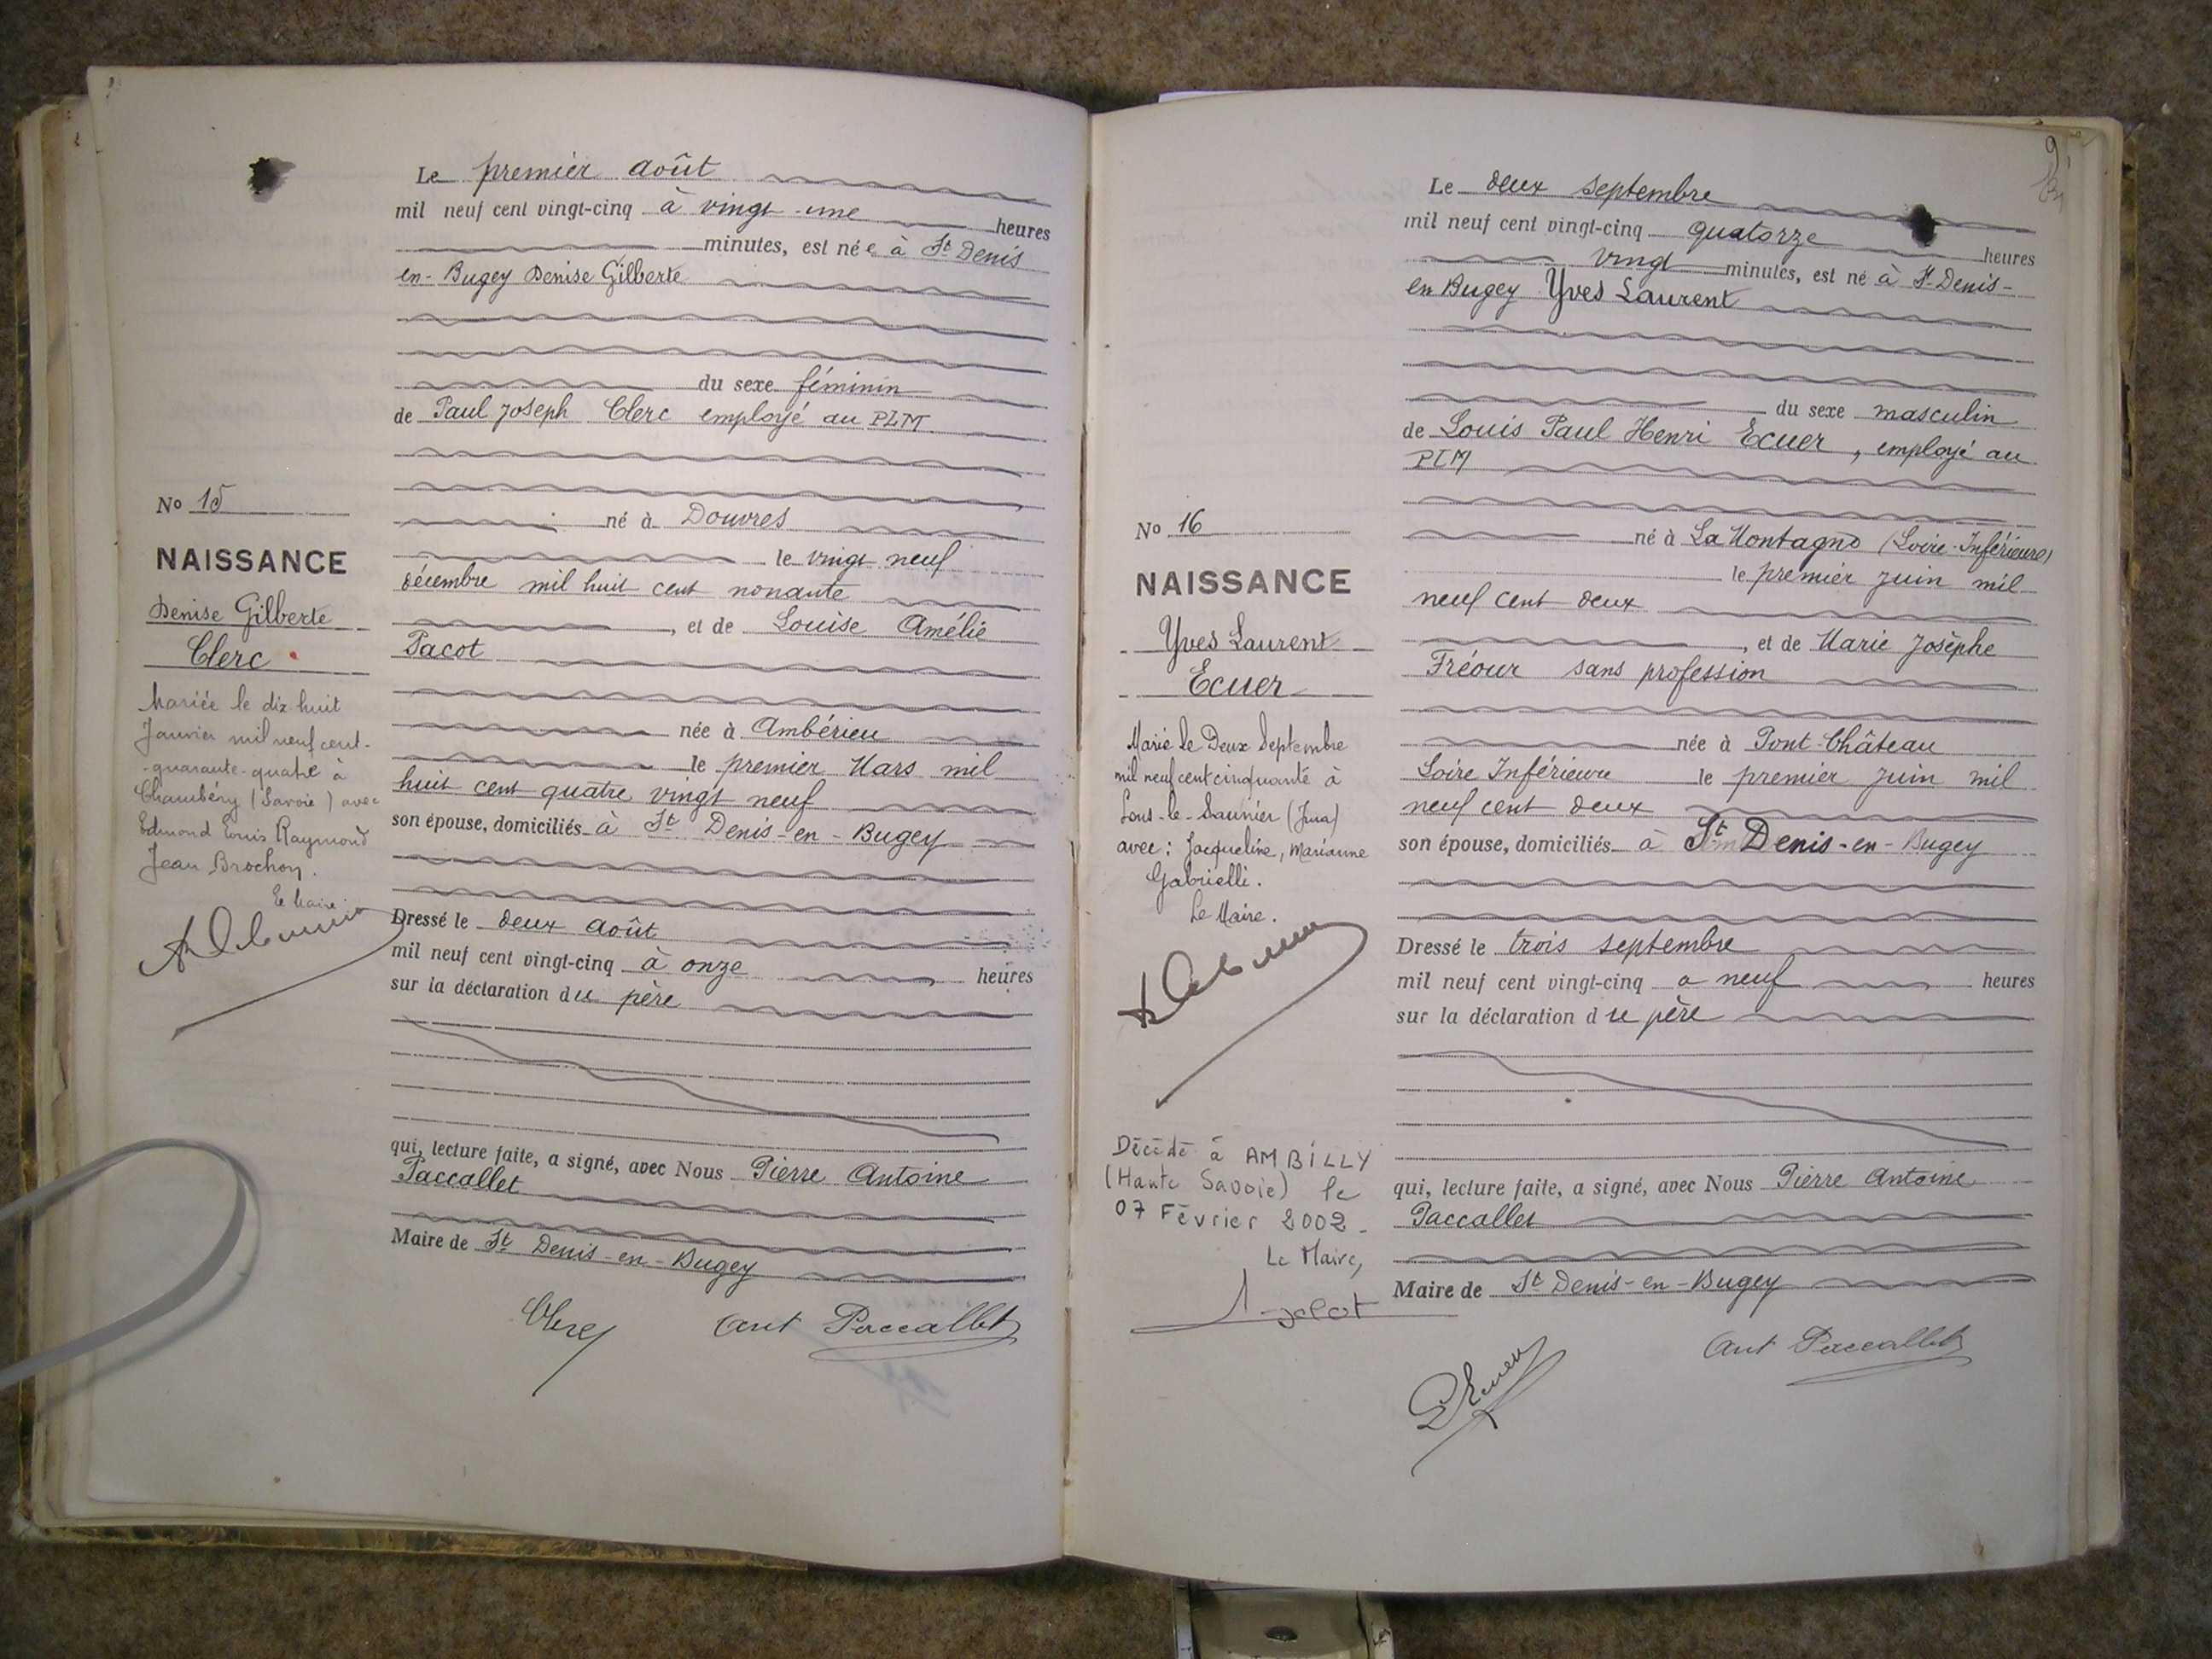 Le premier août
mil neuf cent vingt-cinq à vingt-une heures
minutes, est née à St Denis
en-Bugey Denise Gilberte
du sexe féminin
de Paul Joseph Clerc employé au PLM
né à Douvres
le vingt neuf
décembre mil huit cent nonante
, et de Louise Amélie
Pacot
née à Ambérieu
le premier Mars mil
huit cent quatre vingt neuf
son épouse, domiciliés à St Denis-en-Bugey
Dressé le deux août
mil neuf cent vingt-cinq à onze heures
sur la déclaration du père
qui, lecture faite, a signé, avec Nous Pierre Antoine
Paccallet
Maire de St Denis-en-Bugey
Clerc Ant Paccallet
No 15
NAISSANCE
Denise Gilberte
Clerc
Mariée le dix huit
Janvier mil neuf cent-
-quarante-quatre à
Chambéry (Savoie) avec
Edmond Louis Raymond
Jean Brochon.
Le Maire
9
Le deux septembre
mil neuf cent vingt-cinq quatorze heures
vingt minutes, est né à St-Denis-
en Bugey Yves Laurent
du sexe masculin
de Louis Paul Henri Ecuer, employé au
PLM
né à La Montagne (Loire-Inférieure)
le premier Juin mil
neuf cent deux
, et de Marie Josèphe
Fréour sans profession
née à Pont-Château
Loire Inférieure le premier Juin mil
neuf cent deux
son épouse, domiciliés à St Denis-en-Bugey
Dressé le trois septembre
mil neuf cent vingt-cinq a neuf heures
sur la déclaration du père
qui, lecture faite, a signé, avec Nous Pierre Antoine
Paccallet
Maire de St Denis-en-Bugey
Ecuer Ant Paccallet
No 16
NAISSANCE
Yves Laurent
Ecuer
Marié le Deux Septembre
mil neuf cent cinquante à
Lons-le-Saunier (Jura)
avec: Jacqueline, Marianne
Gabrielli.
Le Maire.
Décédé à AMBILLY
(Haute Savoie) le
07 Février 2002-
Le Maire,